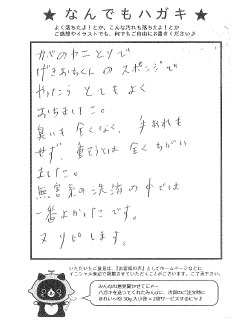 ★ なんでもハガキ ★
よく落ちたよ!とか、こんな汚れも落ちたよ!とか
ご感想やイラストでも、何でもご自由にお書きください♪
カベのヤニとりで
げきおちくんのスポンジで
やったら とてもよく
おちました。
臭いも全くなく、手あれも
せず、重そうとは全くちがい
ました。
無害系の洗剤の中では
一番よかったです。
又リピします。
いただいたご意見は、『お客様の声』としてホームページなどに
イニシャル表記で掲載させていただくことがございます。ご了承下さい。
みんなの意見聞かせてにゃ~
ハガキを送ってくれたみんなに、次回のご注文時に